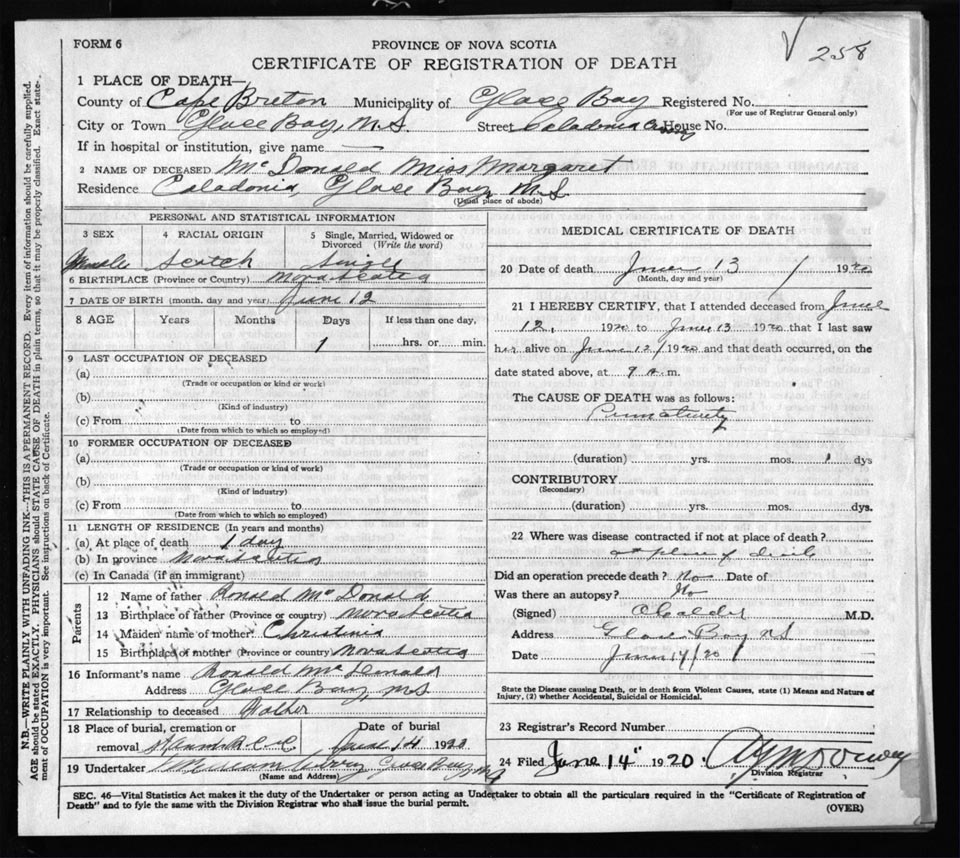 258
FORM 6
PROVINCE OF NOVA SCOTIA
CERTIFICATE OF REGISTRATION OF DEATH
1 PLACE OF DEATH—
County of Cape Breton Municipality of Glace Bay Registered No.
(For use of Registrar General only)
City or Town Glace Bay, N.S. Street Caladonia House No.
If in hospital or institution, give name —
2 NAME OF DECEASED McDonald Miss Margaret
Residence Caladonia Glace Bay N.S.
(Usual place of abode)
PERSONAL AND STATISTICAL INFORMATION
3 SEX 4 RACIAL ORIGIN 5 Single, Married, Widowed or Divorced (Write the word)
Scotch Single
6 BIRTHPLACE (Province or Country) Nova Scotia
7 DATE OF BIRTH (month, day and year) June 12
8 AGE Years Months Days If less than one day,
1 hrs. or min.
9 LAST OCCUPATION OF DECEASED
(a)
(Trade or occupation or kind or work)
(b)
(Kind of industry)
(c) From to
(Date from which to which so employed)
10 FORMER OCCUPATION OF DECEASED
(a)
(Trade or occupation or kind of work)
(b)
(Kind of industry)
(c) From to
(Date from which to which so employed)
11 LENGTH OF RESIDENCE (In years and months)
(a) At place of death 1 day
(b) In province Nova Scotia
(c) In Canada (if an immigrant)
Parents
12 Name of father Ronald McDonald
13 Birthplace of father (Province or country) Nova Scotia
14 Maiden name of mother Christina
15 Birthplace of mother (Province or country) Nova Scotia
16 Informant's name Ronald McDonald
Address Glace Bay, N.S.
17 Relationship to deceased Father
18 Place of burial, cremation or removal Date of burial
June 14 1920
19 Undertaker William Glace Bay N.S.
(Name and Address)
MEDICAL CERTIFICATE OF DEATH
20 Date of death June 13 / 1920
(Month, day and year)
21 I HEREBY CERTIFY, that I attended deceased from June
12, 1920 to June 13 1920 that I last saw
her alive on June 12/1920 and that death occurred, on the
date stated above, at 9 a.m.
The CAUSE OF DEATH was as follows:
Prematurity
(duration) yrs. mos. 1 dys
CONTRIBUTORY
(Secondary)
(duration) yrs. mos. dys.
22 Where was disease contracted if not at place of death?
at place of death
Did an operation precede death? No Date of
Was there an autopsy? No
(Signed) M.D.
Address Glace Bay NS
Date June 14/20
State the Disease causing Death, or in death from Violent Causes, state (1) Means and Nature of
Injury, (2) whether Accidental, Suicidal or Homicidal.
23 Registrar's Record Number
24 Filed June 14" 1920.
Division Registrar
SEC. 46—Vital Statistics Act makes it the duty of the Undertaker or person acting as Undertaker to obtain all the particulars required in the "Certificate of Registration of
Death" and to fyle the same with the Division Registrar who shall issue the burial permit.
(OVER)
N.B.—WRITE PLAINLY WITH UNFADING INK—THIS IS A PERMANENT RECORD. Every item of information should be carefully supplied.
AGE should be stated EXACTLY. PHYSICIANS should STATE CAUSE OF DEATH in plain terms, so that it may be properly classified. Exact state-
ment of OCCUPATION is very important. See instructions on back of Certificate.